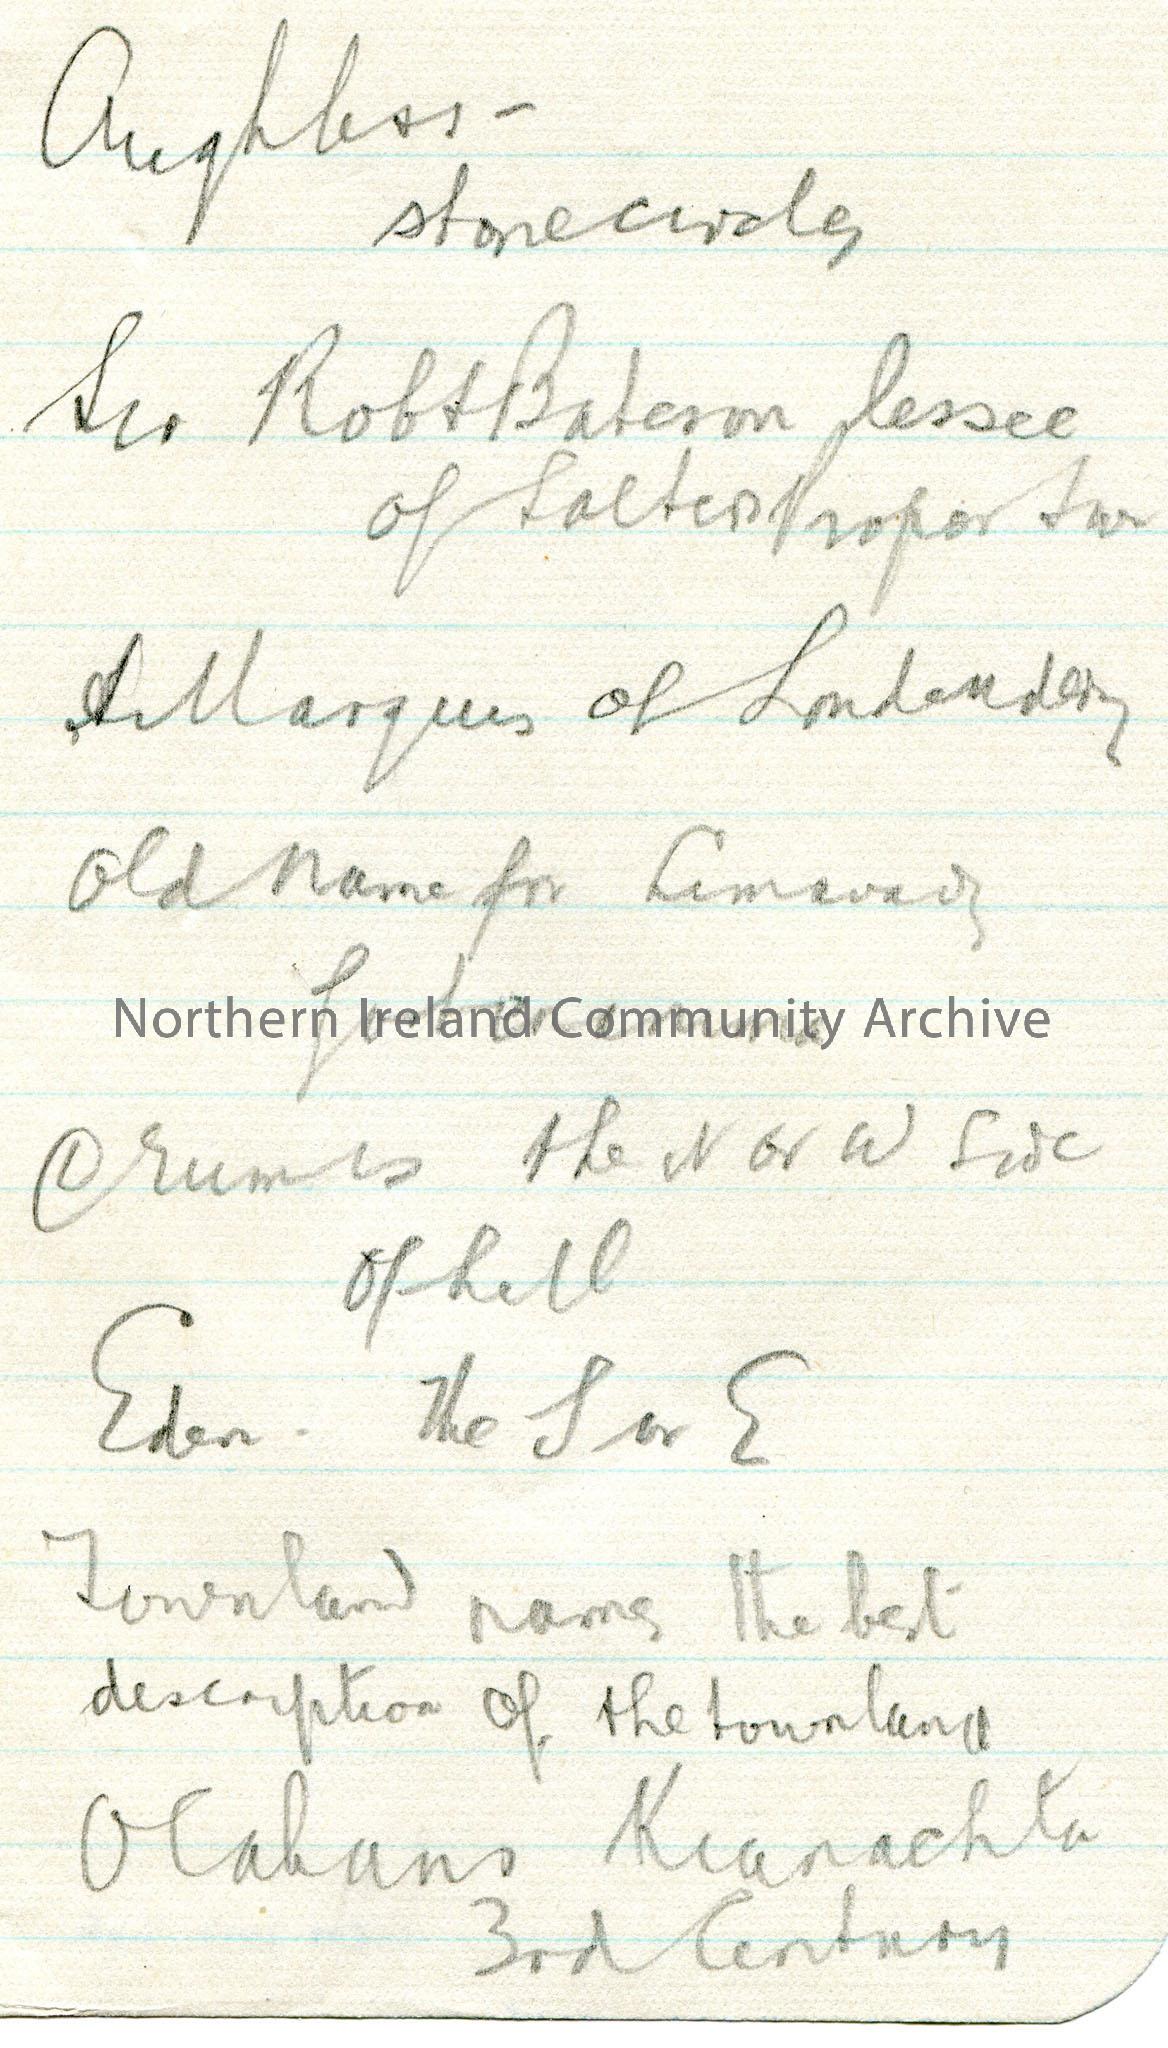 Aughlass -
stone circles
Sir Robt Bateson lessee
of Salters Propor
& Marques of Londonderry
Old name for Limavady
Northern Ireland Community Archive
the N or W Side
of hill
Eden. The S or E
Townland names the best
description of the townland
O Cahans Kianachta
3rd Century